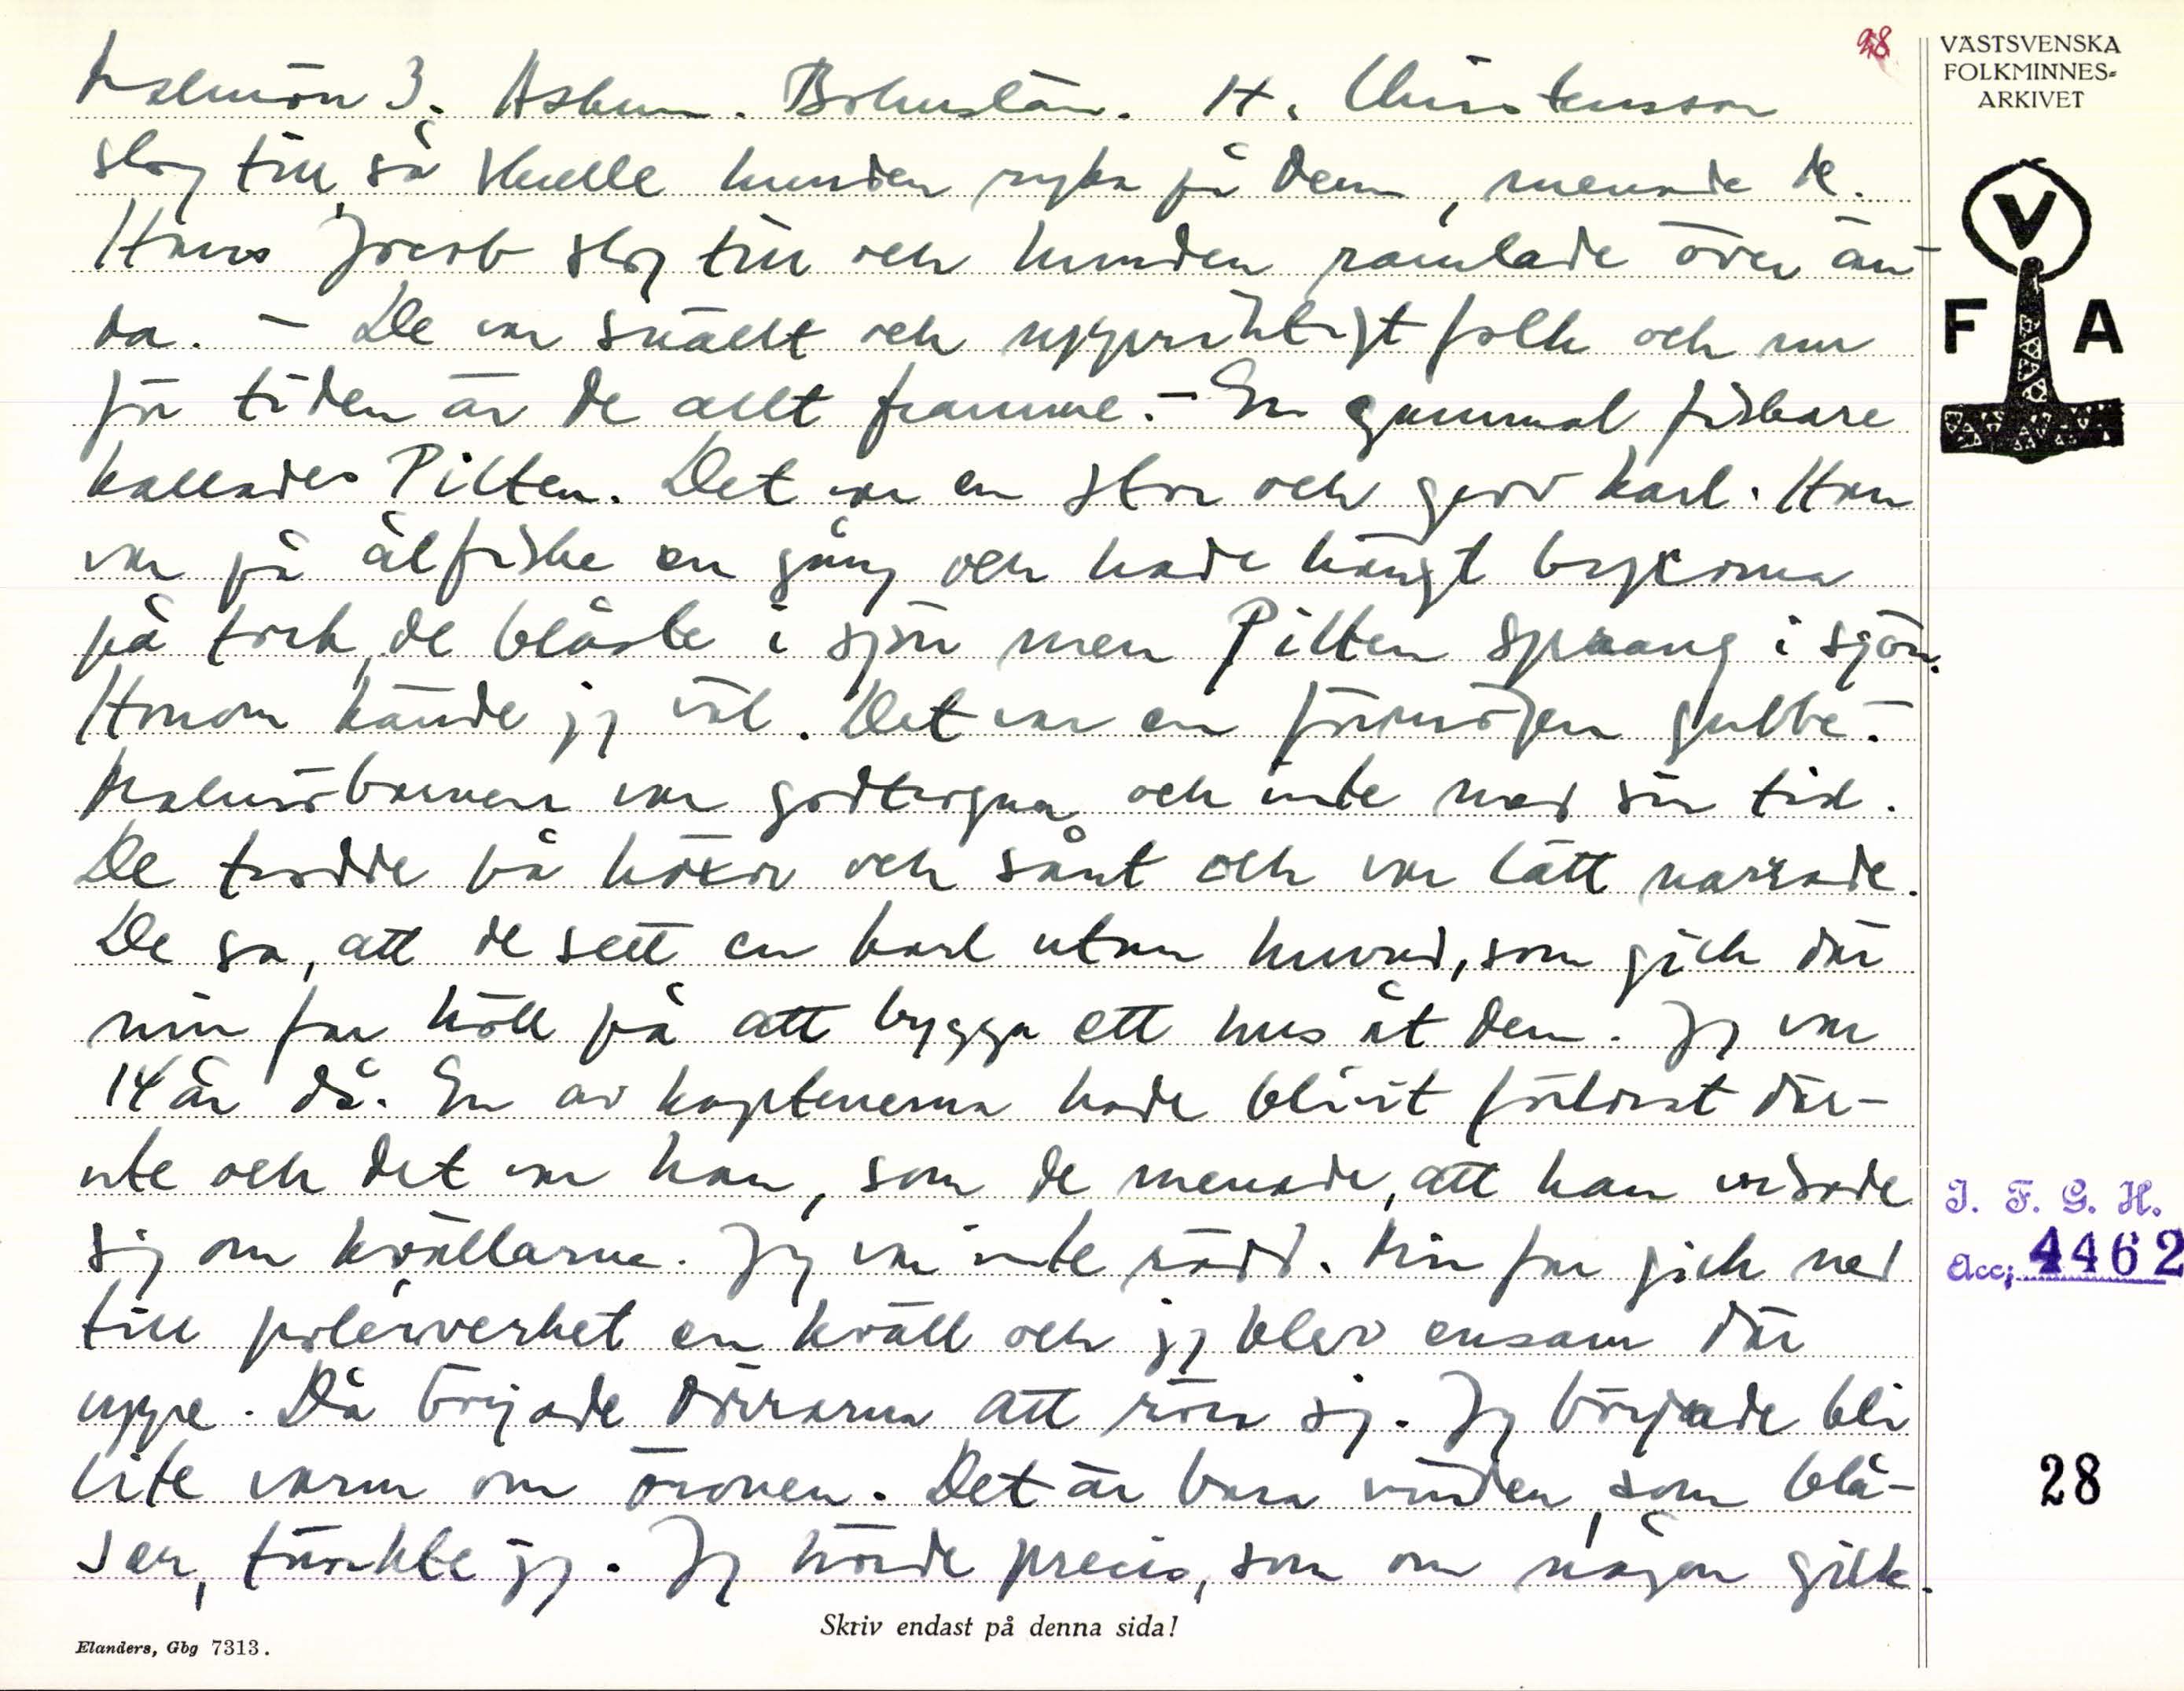 Malmön 3. Askum. Bohuslän. H. Christensson
slog till, så skulle hunden ryka på dem, menade de.
Hans Jacob slog till och hunden ramlade över än-
da. - De var snällt och uppriktigt folk och nu
för tiden är de allt framme. - En gammal fiskare
kallades Pilten. Det var en stor och grov karl. Han
var på ålfiske en gång och hade hängt byxorna
på tork, de blåste i sjön men Pilten spraang i sjön.
Honom kände jg väl. Det var en förmögen gubbe. -
Malmöbarnen var godtrogna och inte med sin tid.
De trodde på häxor och sånt och var lätt narrade.
De sa, att de sett en karl utan huvud, som gick där
min far höll på att bygga ett hus åt dem. Jg var
14 år då. En av kaptenerna hade blivit förlorat där-
ute och det var han, som de menade, att han visade
sig om kvällarna. Jg var inte rädd. Min far gick ned
till polerverket en kväll och jg blev ensam där
uppe. Då började dörrarna att röra sig. Jg började bli
lite varm om öronen. Det är bara vinden, som blå-
ser, tänkte jg. Jg hörde precis, som om någon gick.
Skriv endast på denna sida!
Elanders, Gbg 7313.
98
VÄSTSVENSKA
FOLKMINNES-
ARKIVET
V
F A
I. F. G. H.
Acc; 4462
28